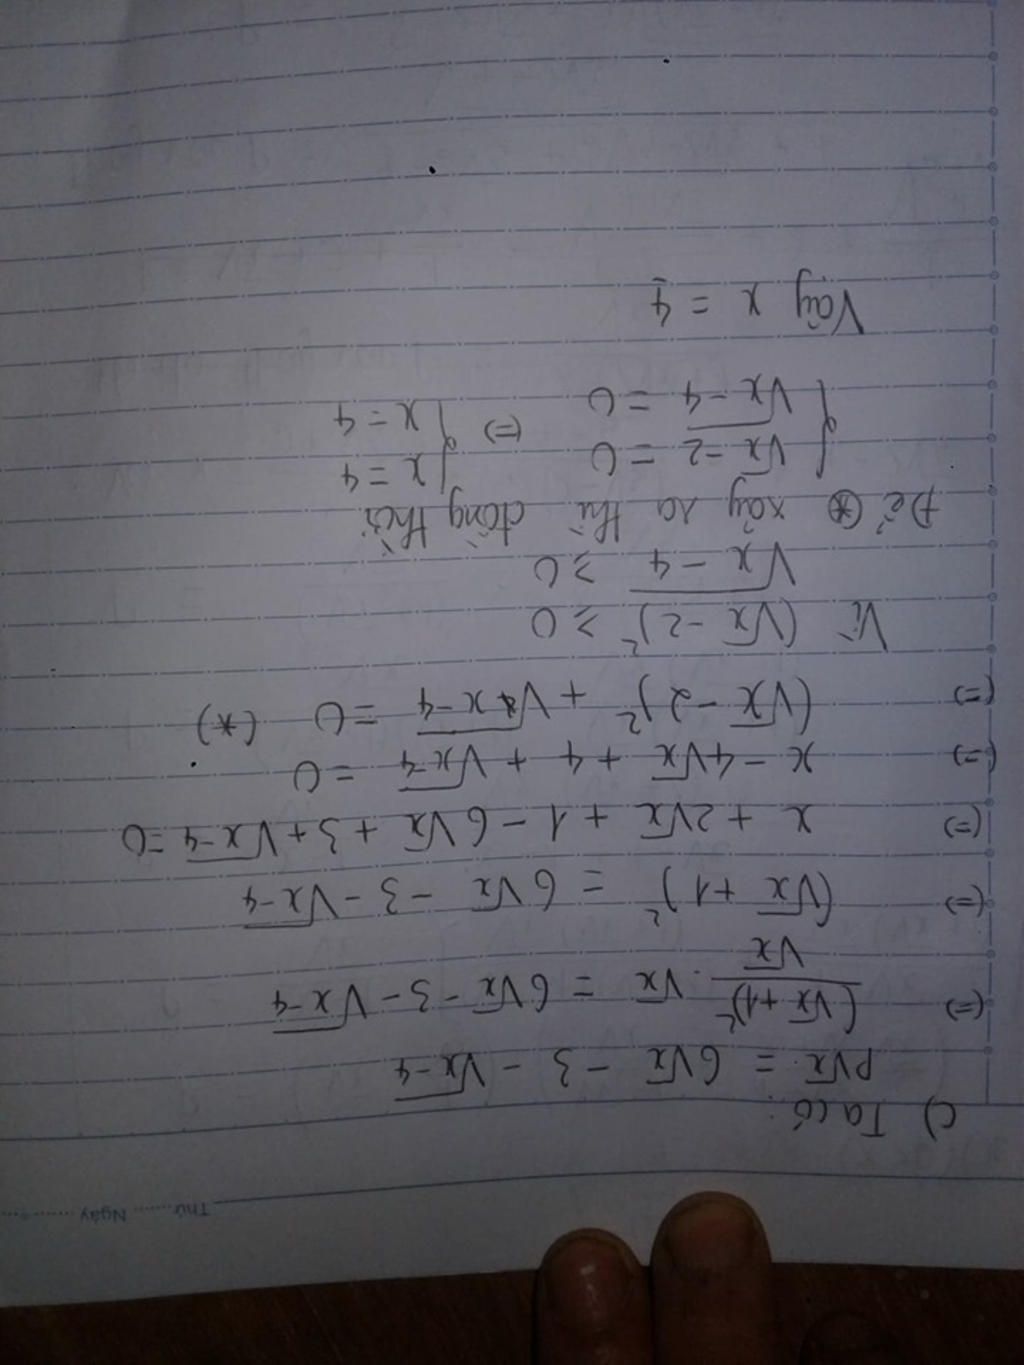 Thứ ........ Ngày ........
c) Ta có:
P√x = 6√x - 3 - √x-4
(=) (√x+1)²/√x . √x = 6√x - 3 - √x-4
(=) (√x+1)² = 6√x - 3 - √x-4
(=) x + 2√x + 1 - 6√x + 3 + √x-4 = 0
(=) x - 4√x + 4 + √x-4 = 0
(=) (√x - 2)² + √x-4 = 0 (*)
Vì (√x - 2)² ≥ 0
√x - 4 ≥ 0
Để (*) xảy ra thì đồng thời
{ √x - 2 = 0 (=) { x = 4
{ √x - 4 = 0 { x = 4
Vậy x = 4